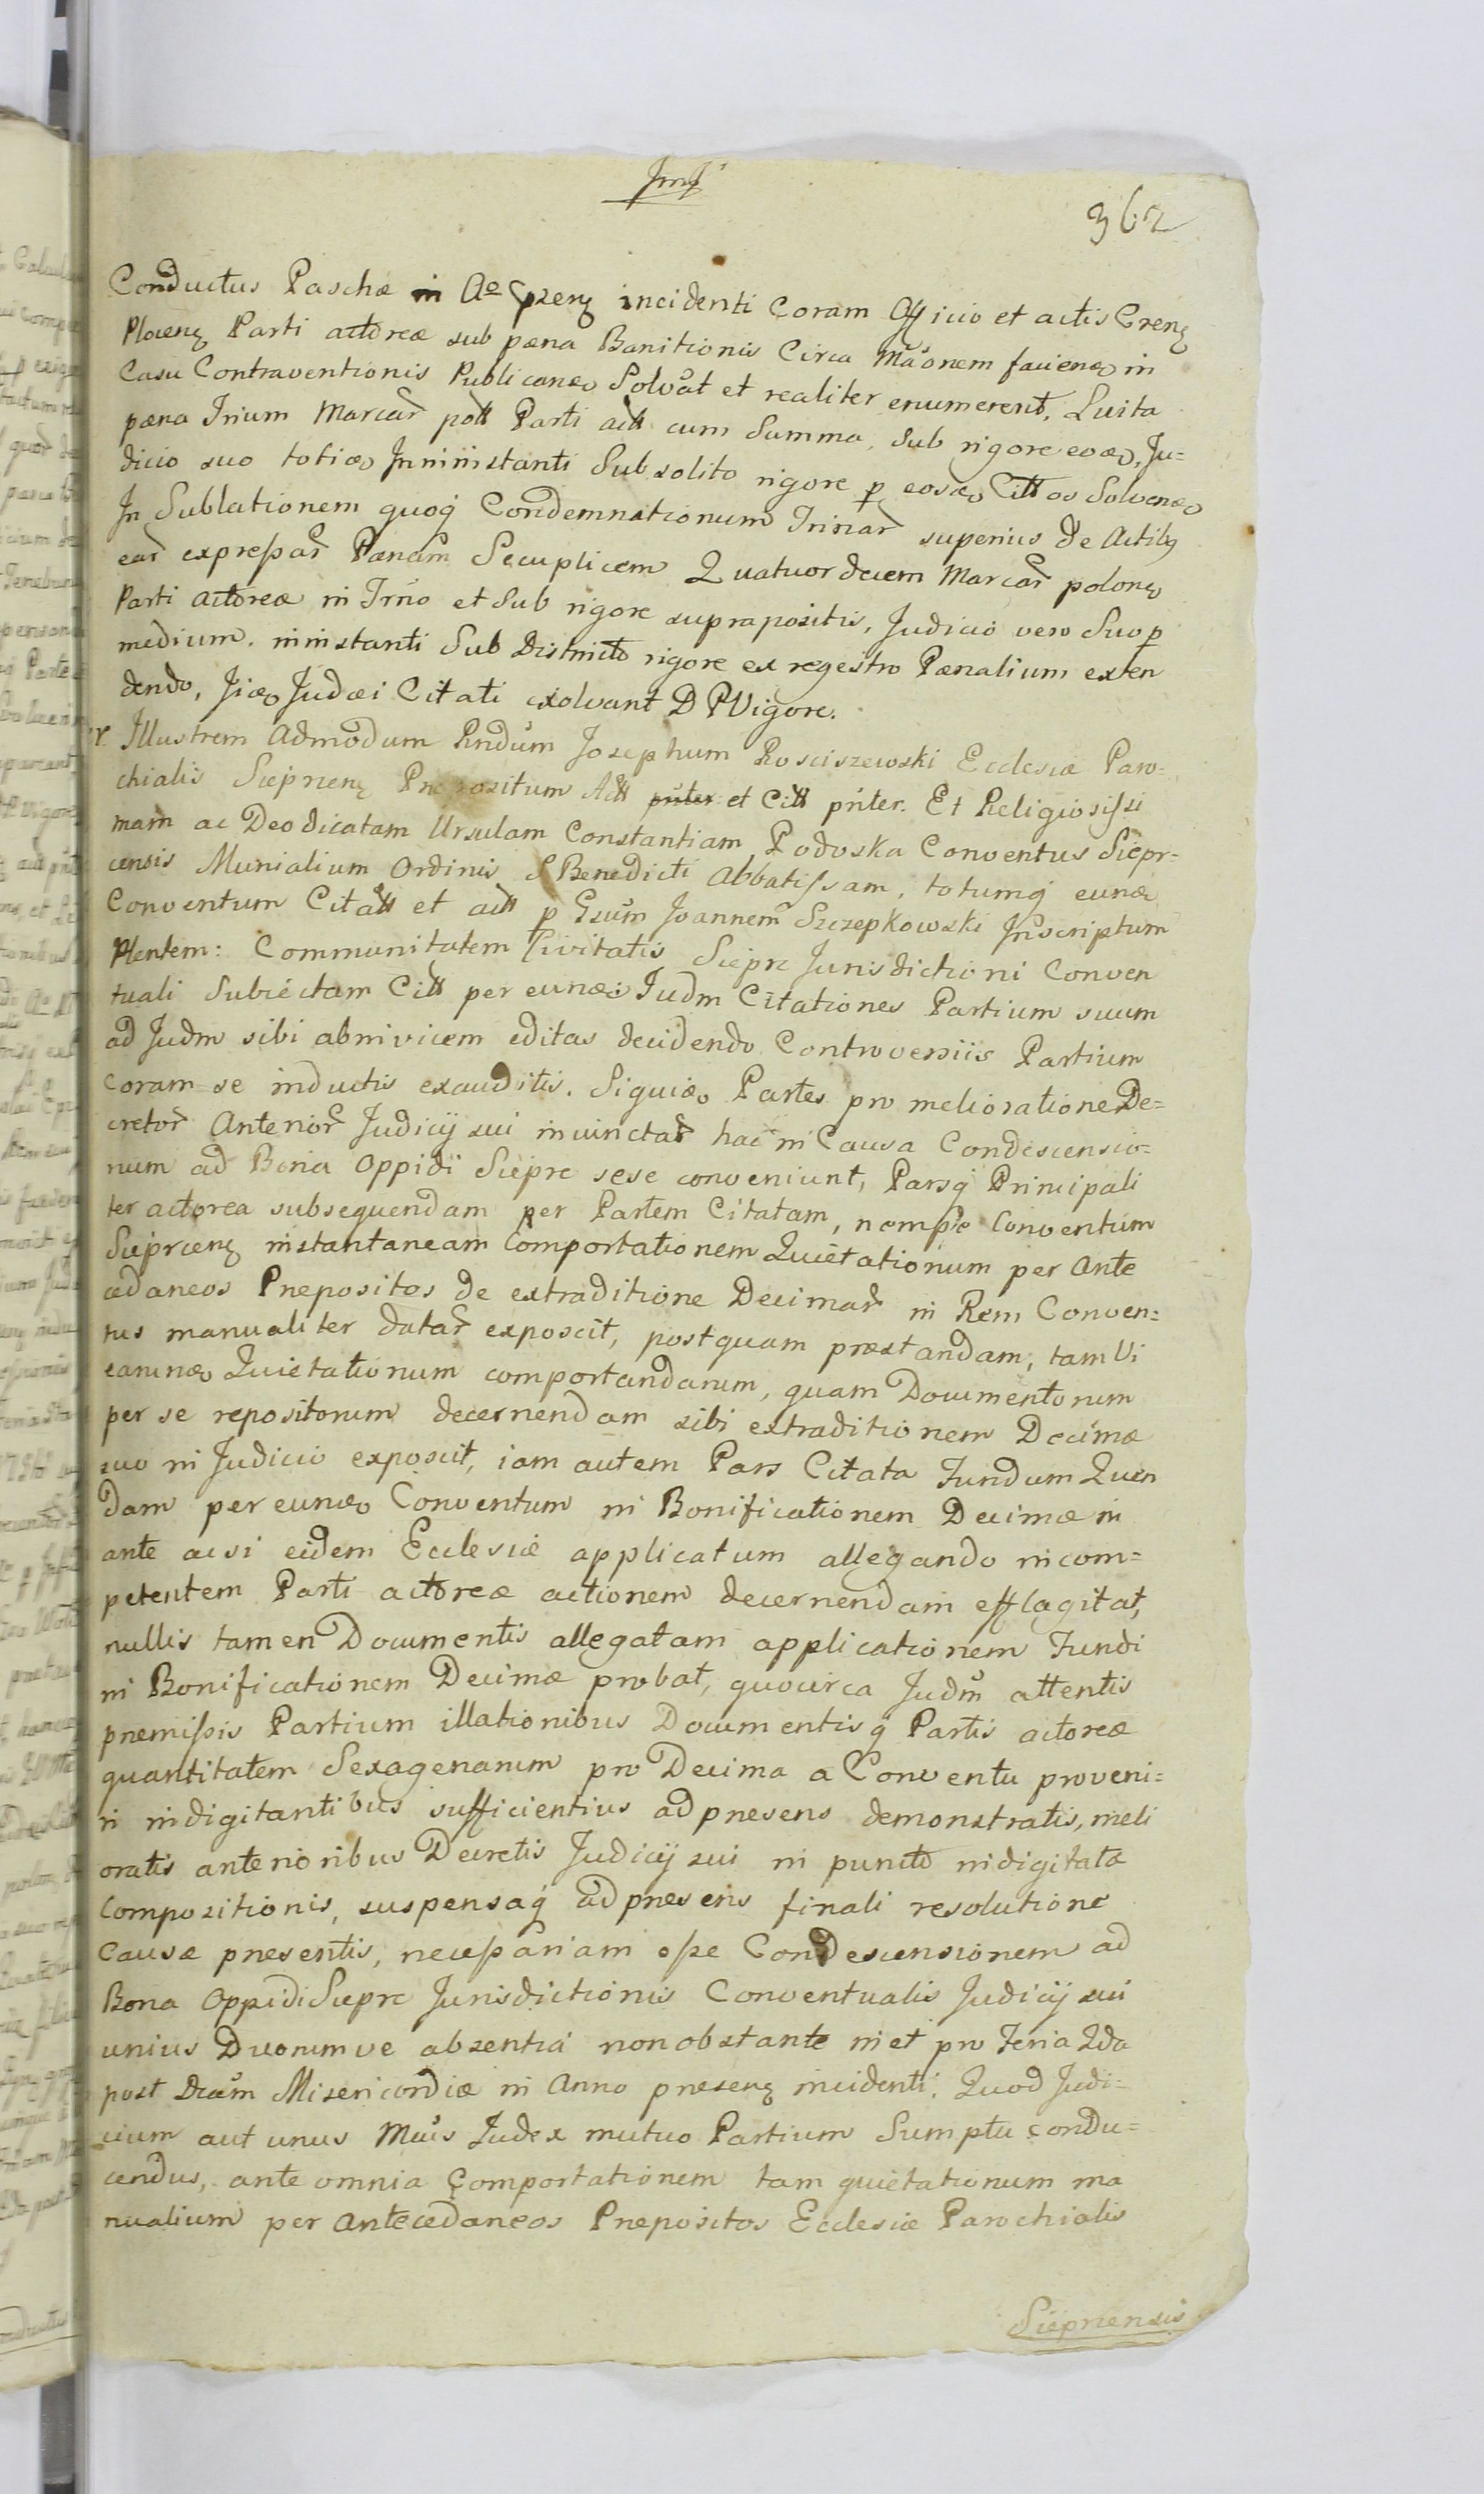 362
Conductus Paschæ in Aõ præsen incidenti Coram Officio et actis Cren
Plocen Parti actoreæ sub pæna Banitionis Circa Mãonem faciend in
Casu Contraventionis Publicand Solvãt et realiter enumerent, Luita
pæna Trium Marcar Parti act cum Summa, Sub rigore eod, Ju=
dicio suo totid Ininstanti Sub solito rigore p eosd Cittos Solvend
In Sublationem quoq Condemnationum Trinar superius de Actib
ear expressar Pænam Secuplicem Quatuordecem Marcar polon
Parti actoreæ in Trno et Sub rigore suprapositis, Judicio vero Suo p
medium. ininstanti Sub Districto rigore ex regestro Pænalium exten
dendo, Jid Judæi Citati exolvant D P Vigore.
Illustrem Admodum Rndum Josephum Rosciszewski Ecclesiæ Paro=
chialis Sieprcen Præpositum Act et Citt pnter. Et Religiosissi
mam ac Deo dicatam Ursulam Constantiam Podoska Conventus Siepr=
censis Munialium Ordinis S Benedicti Abbatissam, totumq eund
Conventum Citatt et act p Gsum Joannem Szczepkowski Inscriptum
Plentem: Communitatem Civitatis Siepre Jurisdictioni Conven
tuali Subiectam Citt per eund Judm Citationes Partium suum
ad Judm sibi abinvicem editas decidendo Controversiis Partium
coram se inductis exauditis. Siquid Partes pro melioratione De=
cretor Anterior Judicij sui invinctar hac in Causa Condescensio=
num ad Bona Oppidi Siepre sese conveniunt, Parsq Principali
ter actorea subsequendam per Partem Citatam, nempe Conventum
Sieprcen instantaneam Comportationem Quietationum per Ante
cedaneos Prepositos de extraditione Decimar in Rem Conven=
tus manualiter datar exposcit, postquam præstandam, tam Vi
earund Quietationum comportandarum, quam Documentorum
per se repositorum decernendam sibi extraditionem Decimæ
suo in Judicio exposcit, iam autem Pars Citata Fundum Quen
dam per eund Conventum in Bonificationem Decimæ in
ante ac si eidem Ecclesiæ applicatum allegando incom=
petentem Parti actoreæ actionem decernendam efflagitat,
nullis tamen Documentis allegatam applicationem Fundi
in Bonificationem Decimæ probat, quocirca Judm attentis
premissis Partium illationibus Documentisq Partis actoreæ
quantitatem Sexagenarum pro Decima a Conventu proveni=
ri indigitantibus sufficientius ad presens demonstratis, meli
oratis anterioribus Decretis Judicij sui in puncto indigitatæ
Compositionis, suspensaq ad presens finali resolutione
Causæ presentis, necessariam esse Condescensionem ad
Bona Oppidi Siepre Jurisdictionis Conventualis Judicij sui
unius Duorumve absentia non obstante in et pro Feria 2da
post Dcam Misericordiæ in Anno presen incidenti, Quod Judi=
cium aut unus Mus Judex mutuo Partium Sumptu condu=
cendus, ante omnia Comportationem tam quietationum ma
nualium per Antecedaneos Prepositos Ecclesiæ Parochialis
Sieprcensis